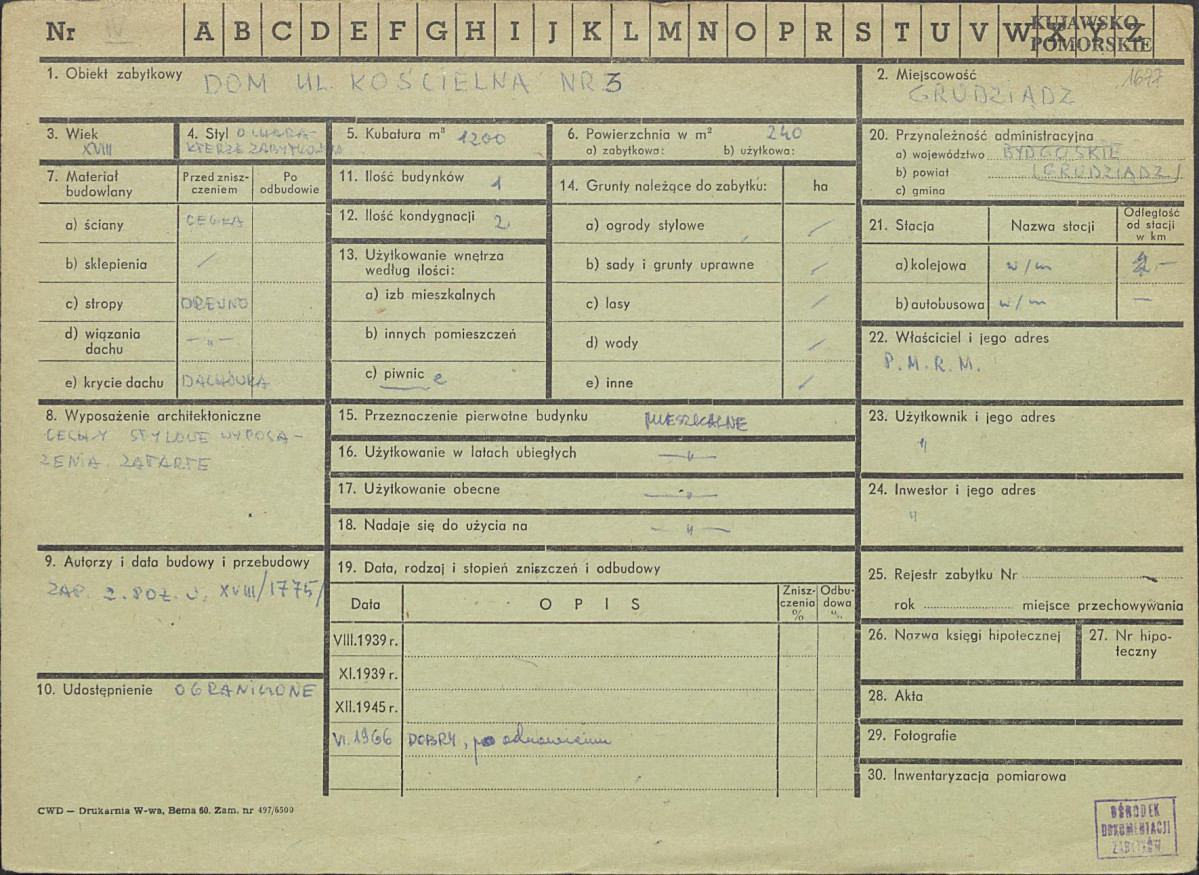 Nr IV A B C D E F G H I J K L M N O P R S T U V W X Y Z
KUJAWSKO
POMORSKIE
1. Obiekt zabytkowy DOM UL. KOŚCIELNA NR 3
2. Miejscowość 1677
GRUDZIĄDZ
3. Wiek
XVIII
4. Styl O CHARA-
KTERZE ZABYTKOWYM
5. Kubatura m³ 1200
6. Powierzchnia w m² 240
a) zabytkowa: b) użytkowa:
20. Przynależność administracyjna
a) województwo BYDGOSKIE
b) powiat (GRUDZIĄDZ)
c) gmina
7. Materiał
budowlany
Przed znisz-
czeniem
Po
odbudowie
a) ściany CEGŁA
b) sklepienia /
c) stropy DREWNO
d) wiązania
dachu — „ —
e) krycie dachu DACHÓWKA
11. Ilość budynków 1
12. Ilość kondygnacji 2
13. Użytkowanie wnętrza
według ilości:
a) izb mieszkalnych
b) innych pomieszczeń
c) piwnic
14. Grunty należące do zabytku: ha
a) ogrody stylowe /
b) sady i grunty uprawne /
c) lasy /
d) wody /
e) inne /
21. Stacja Nazwa stacji
Odległość
od stacji
w km
a) kolejowa w/m
b) autobusowa w/m —
22. Właściciel i jego adres
P.M.R.M.
8. Wyposażenie architektoniczne
CECHY STYLOWE WYPOSA-
ŻENIA ZATARTE
15. Przeznaczenie pierwotne budynku MIESZKALNE
16. Użytkowanie w latach ubiegłych — „ —
17. Użytkowanie obecne — „ —
18. Nadaje się do użycia na — „ —
23. Użytkownik i jego adres
„
24. Inwestor i jego adres
„
9. Autorzy i data budowy i przebudowy
ZAP. 2. POŁ. W. XVIII /1775/
10. Udostępnienie OGRANICZONE
19. Data, rodzaj i stopień zniszczeń i odbudowy
Data O P I S
Znisz-
czenia
%
Odbu-
dowa
%
VIII.1939 r.
XI.1939 r.
XII.1945 r.
VI.1966 DOBRY, po odnowieniu
25. Rejestr zabytku Nr
rok miejsce przechowywania
26. Nazwa księgi hipotecznej
27. Nr hipo-
teczny
28. Akta
29. Fotografie
30. Inwentaryzacja pomiarowa
CWD — Drukarnia W-wa, Bema 60. Zam. nr 497/6500
OŚRODEK
DOKUMENTACJI
ZABYTKÓW